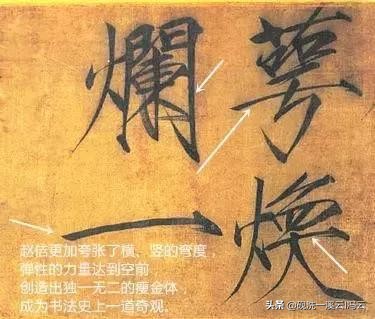 萼煥
爛一
赵佶更加夸张了横、竖的弯度，
弹性的力量达到空前，
创造出独一无二的瘦金体，
成为书法史上一道奇观。
头条 @砚洗一溪云I冯云